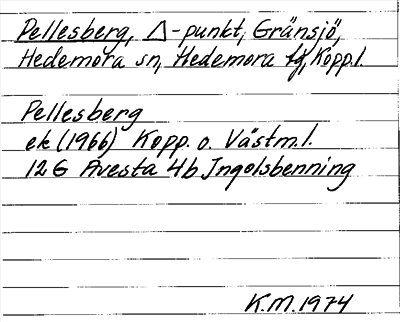 Pellesberg, Δ-punkt, Gränsjö,
Hedemora sn, Hedemora tg, Kopp.l.
Pellesberg
ek (1966) Kopp. o. Västm.l.
12 G Avesta 4b Ingolsbenning
K.M. 1974